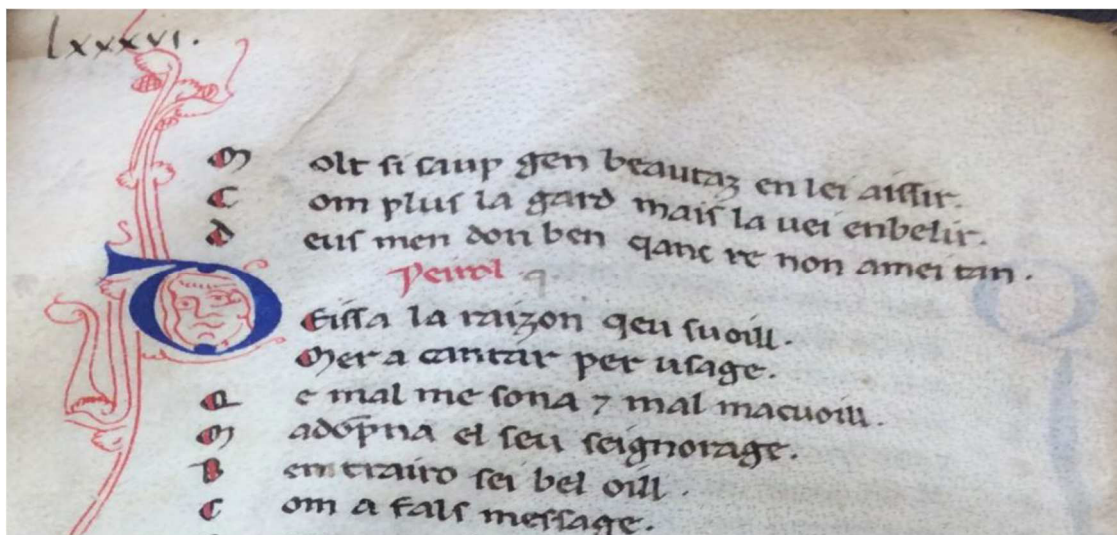 lxxxvi.
M olt si saup gen beautaz en lei aissir.
C om plus la gard mais la uei enbelir.
d eus men don ben qanc re non amei tan.
Peirol
D Eissa la raizon qeu suoill.
Mer a cantar per usage.
Q e mal me sona ⁊ mal macuoill.
M adōpna el seu seignorage.
B em trairo sei bel oill.
C om a fals message.